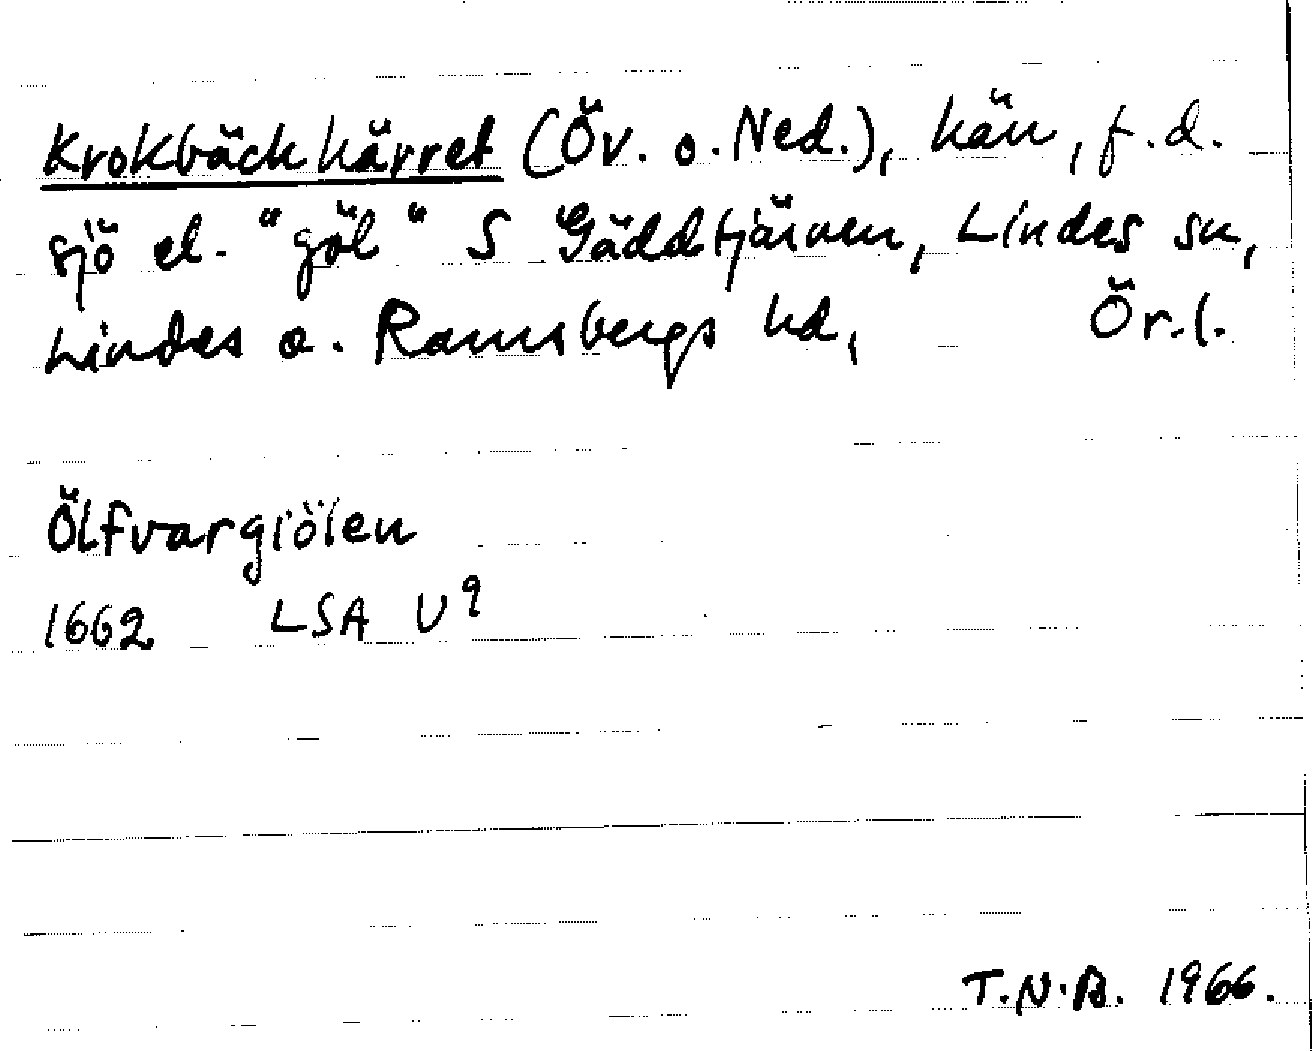 Krokbäckkärret (Öv. o. Ned.), kärr, f.d.
sjö el. "göl" S Gäddtjärnen, Lindes sn,
Lindes o. Ramsbergs hd, Ör.l.
Ölfvargiölen
1662 LSA U9
T.N.B. 1966.